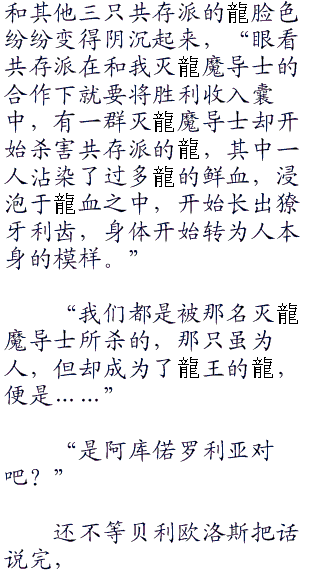 和其他三只共存派的龍脸色
纷纷变得阴沉起来，“眼看
共存派在和我灭龍魔导士的
合作下就要将胜利收入囊
中，有一群灭龍魔导士却开
始杀害共存派的龍，其中一
人沾染了过多龍的鲜血，浸
泡于龍血之中，开始长出獠
牙利齿，身体开始转为人本
身的模样。”
“我们都是被那名灭龍
魔导士所杀的，那只虽为
人，但却成为了龍王的龍，
便是……”
“是阿库偌罗利亚对
吧？”
还不等贝利欧洛斯把话
说完，